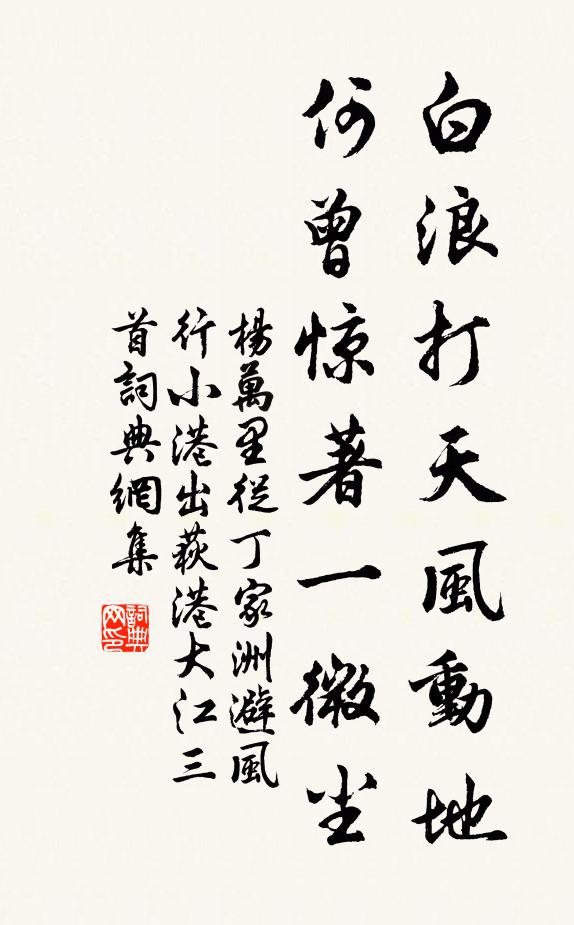 白浪打天風動地
何曾惊著一微尘
楊萬里從丁家洲避風
行小港出荻港大江三
首詞典網集
詞典网印